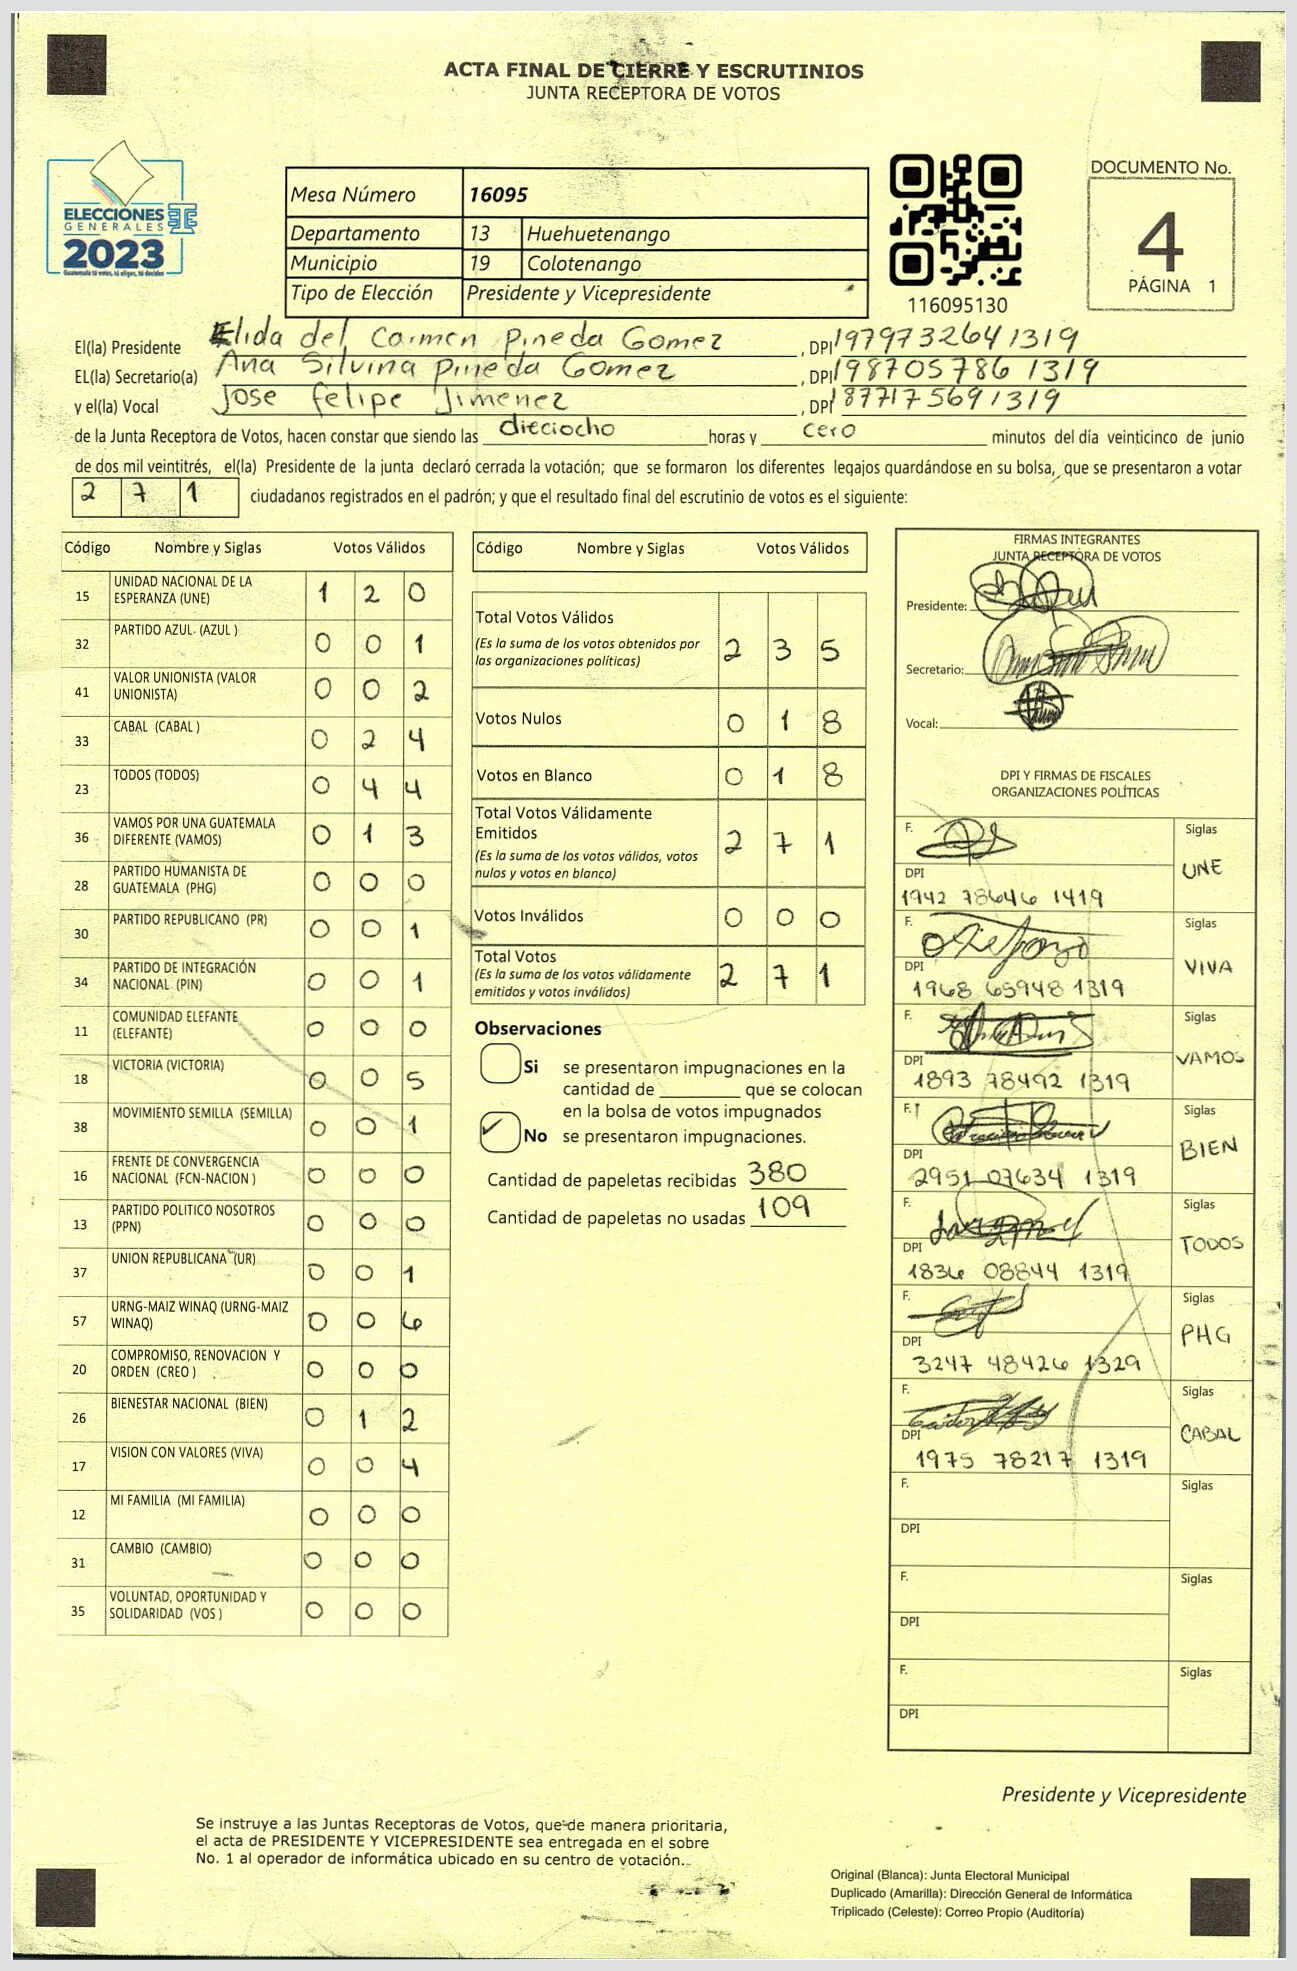 ACTA FINAL DE CIERRE Y ESCRUTINIOS
JUNTA RECEPTORA DE VOTOS
ELECCIONES
GENERALES
2023
Guatemala tú votas, tú eliges, tú decides
Mesa Número 16095
Departamento 13 Huehuetenango
Municipio 19 Colotenango
Tipo de Elección Presidente y Vicepresidente
116095130
DOCUMENTO No.
4
PÁGINA 1
El(la) Presidente Elida del Carmen Pineda Gomez, DPI 1979732641319
EL(la) Secretario(a) Ana Silvina Pineda Gomez, DPI 198705786 1319
y el(la) Vocal Jose Felipe Jimenez, DPI 1877175691319
de la Junta Receptora de Votos, hacen constar que siendo las dieciocho horas y cero minutos del día veinticinco de junio
de dos mil veintitrés, el(la) Presidente de la junta declaró cerrada la votación; que se formaron los diferentes legajos quardándose en su bolsa, que se presentaron a votar
2 7 1 ciudadanos registrados en el padrón; y que el resultado final del escrutinio de votos es el siguiente:
Código Nombre y Siglas Votos Válidos
15 UNIDAD NACIONAL DE LA ESPERANZA (UNE) 1 2 0
32 PARTIDO AZUL (AZUL ) 0 0 1
41 VALOR UNIONISTA (VALOR UNIONISTA) 0 0 2
33 CABAL (CABAL ) 0 2 4
23 TODOS (TODOS) 0 4 4
36 VAMOS POR UNA GUATEMALA DIFERENTE (VAMOS) 0 1 3
28 PARTIDO HUMANISTA DE GUATEMALA (PHG) 0 0 0
30 PARTIDO REPUBLICANO (PR) 0 0 1
34 PARTIDO DE INTEGRACIÓN NACIONAL (PIN) 0 0 1
11 COMUNIDAD ELEFANTE (ELEFANTE) 0 0 0
18 VICTORIA (VICTORIA) 0 0 5
38 MOVIMIENTO SEMILLA (SEMILLA) 0 0 1
16 FRENTE DE CONVERGENCIA NACIONAL (FCN-NACION ) 0 0 0
13 PARTIDO POLITICO NOSOTROS (PPN) 0 0 0
37 UNION REPUBLICANA (UR) 0 0 1
57 URNG-MAIZ WINAQ (URNG-MAIZ WINAQ) 0 0 6
20 COMPROMISO, RENOVACION Y ORDEN (CREO ) 0 0 0
26 BIENESTAR NACIONAL (BIEN) 0 1 2
17 VISION CON VALORES (VIVA) 0 0 4
12 MI FAMILIA (MI FAMILIA) 0 0 0
31 CAMBIO (CAMBIO) 0 0 0
35 VOLUNTAD, OPORTUNIDAD Y SOLIDARIDAD (VOS ) 0 0 0
Código Nombre y Siglas Votos Válidos
Total Votos Válidos
(Es la suma de los votos obtenidos por
las organizaciones políticas) 2 3 5
Votos Nulos 0 1 8
Votos en Blanco 0 1 8
Total Votos Válidamente
Emitidos
(Es la suma de los votos válidos, votos
nulos y votos en blanco) 2 7 1
Votos Inválidos 0 0 0
Total Votos
(Es la suma de los votos válidamente
emitidos y votos inválidos) 2 7 1
Observaciones
Si se presentaron impugnaciones en la
cantidad de que se colocan
en la bolsa de votos impugnados
No se presentaron impugnaciones.
Cantidad de papeletas recibidas 380
Cantidad de papeletas no usadas 109
FIRMAS INTEGRANTES
JUNTA RECEPTORA DE VOTOS
Presidente:
Secretario:
Vocal:
DPI Y FIRMAS DE FISCALES
ORGANIZACIONES POLÍTICAS
F. Siglas
UNE
DPI
1942 78646 1419
F. Siglas
VIVA
DPI
1968 65948 1319
F. Siglas
VAMOS
DPI
1893 78492 1319
F. Siglas
BIEN
DPI
2951 07634 1319
F. Siglas
TODOS
DPI
1836 08844 1319
F. Siglas
PHG
DPI
3247 48426 1329
F. Siglas
CABAL
DPI
1975 78217 1319
F. Siglas
DPI
F. Siglas
DPI
F. Siglas
DPI
Presidente y Vicepresidente
Se instruye a las Juntas Receptoras de Votos, que de manera prioritaria,
el acta de PRESIDENTE Y VICEPRESIDENTE sea entregada en el sobre
No. 1 al operador de informática ubicado en su centro de votación.
Original (Blanca): Junta Electoral Municipal
Duplicado (Amarilla): Dirección General de Informática
Triplicado (Celeste): Correo Propio (Auditoría)